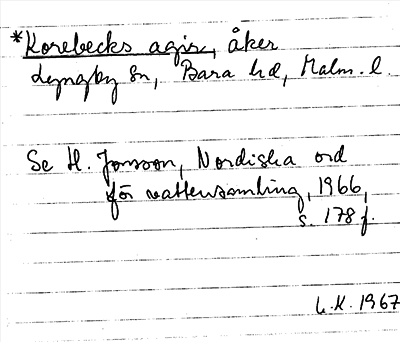 *Korebecks agir, åker
Lyngby sn, Bara hd, Malm. l.
Se H. Jonsson, Nordiska ord
för vattensamling, 1966,
s. 178 f.
L.H. 1967